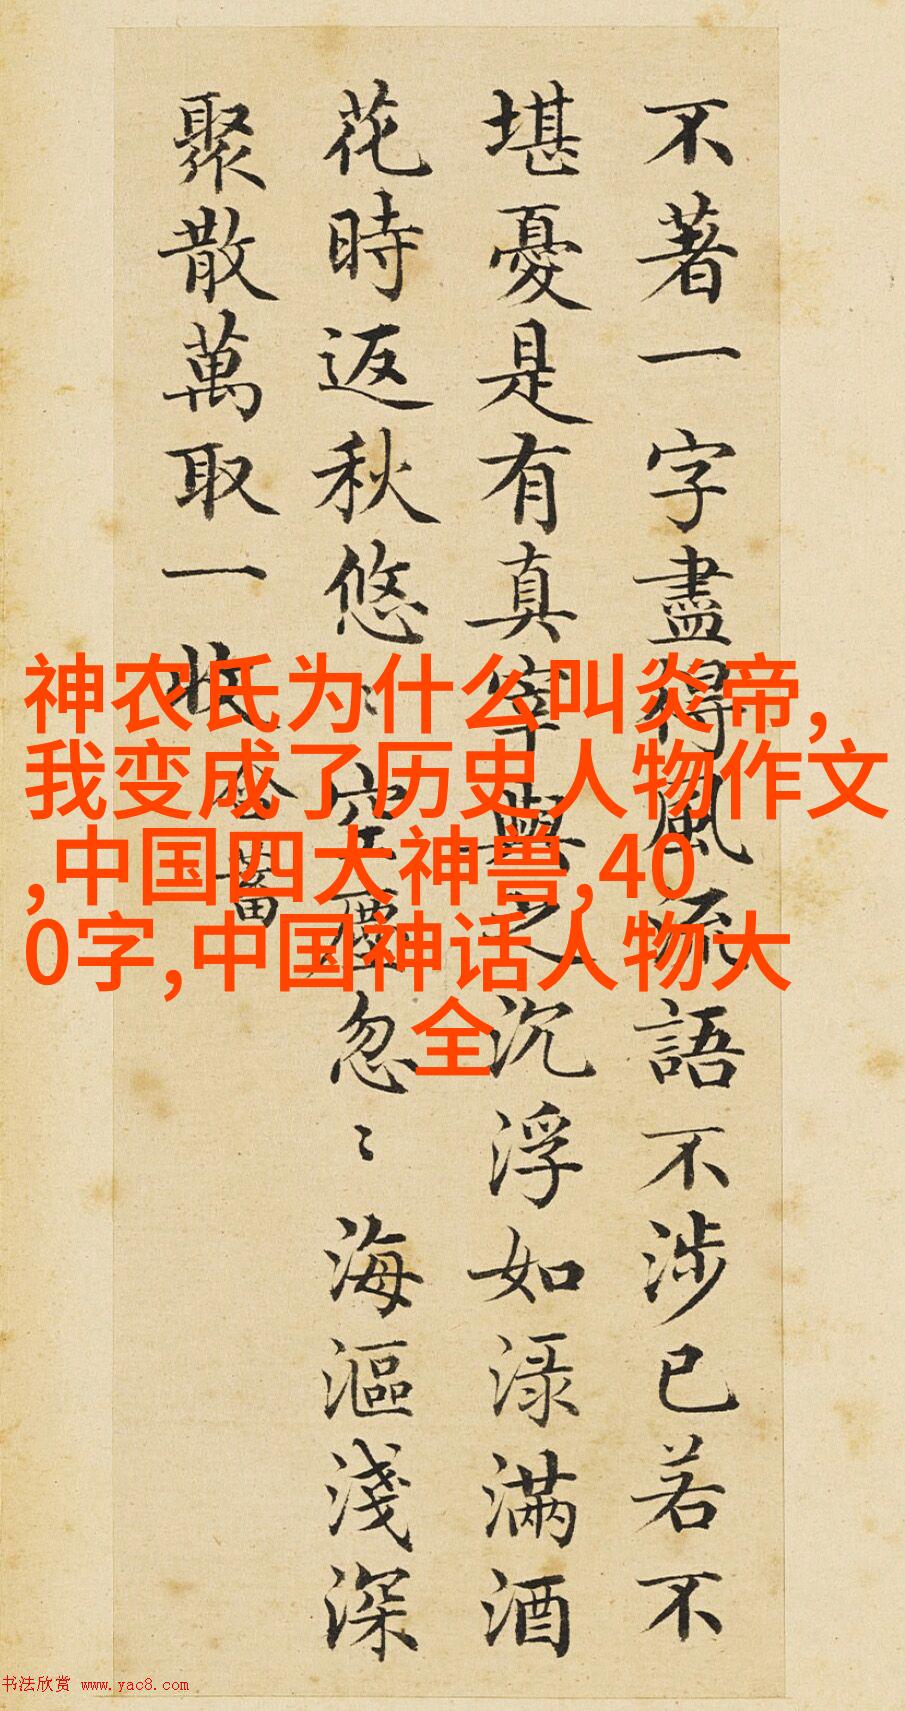 不著一字盡得風流語不涉已若不
堪憂是有真宰與之沉浮如渌滿酒
花時返秋悠〻空塵忽〻海漚淺深
聚散萬取一收 含蓄
神农氏为什么叫炎帝,
我变成了历史人物作文
,中国四大神兽,40
0字,中国神话人物大
全
书法欣赏 www.yac8.com